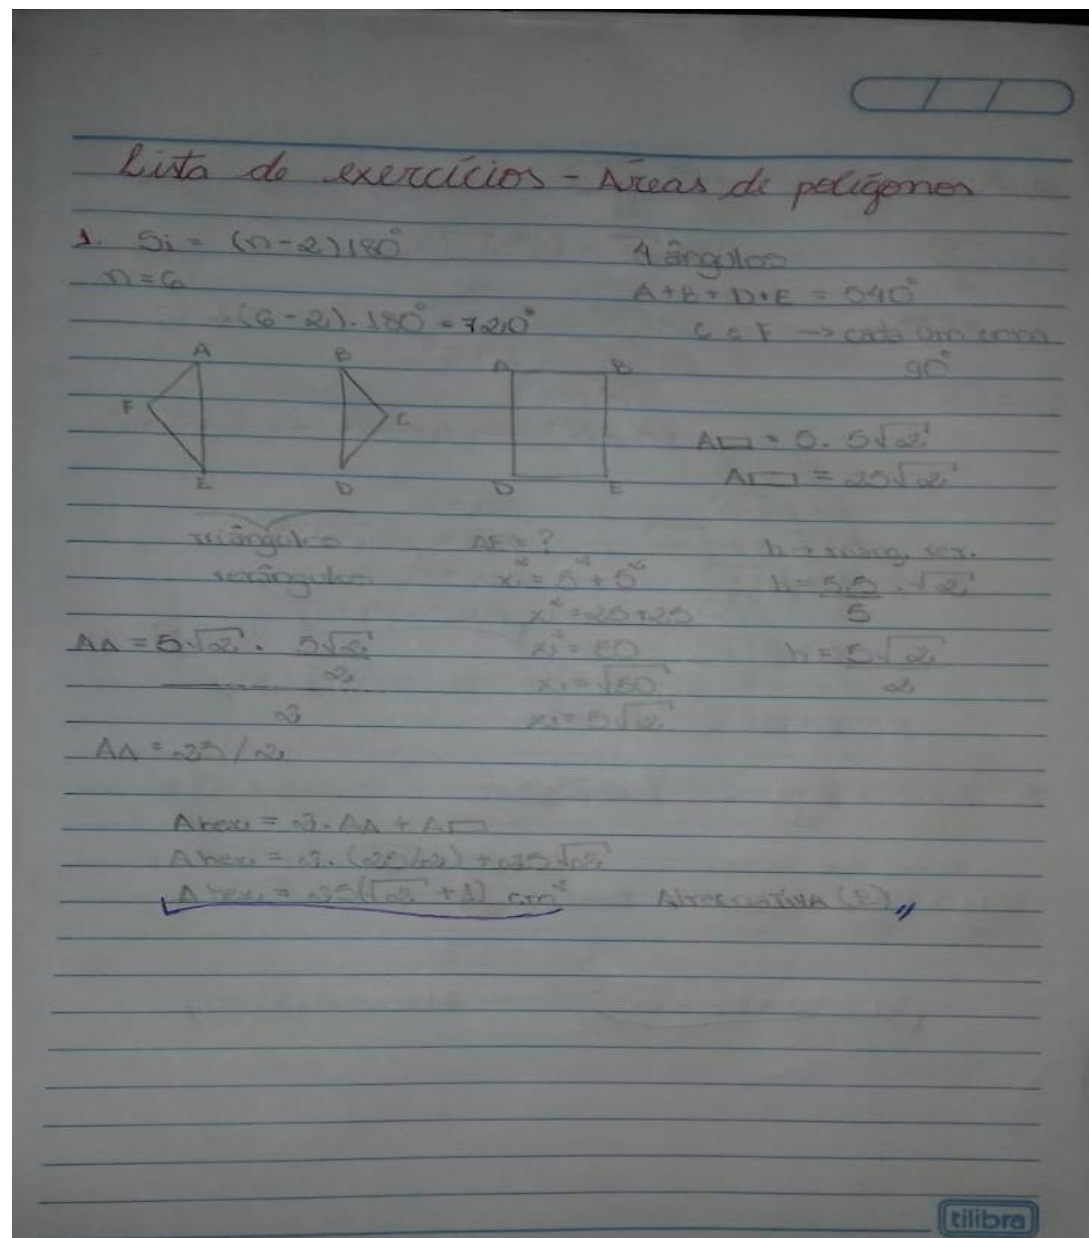 Lista de exercícios - Áreas de polígonos
1. Si = (n-2)180°
n=6
(6-2).180° = 720°
4 ângulos
A+B+D+E = 540°
C e F → cada um
90°
A
F
E
B
C
D
A
B
D
E
A▭ = 5. 5√2
A▭ = 25√2
triângulos
AE = ?
x² = 5² + 5²
x² = 25+25
x² = 50
x = √50
x = 5√2
h = 5.5 . √2
5
h = 5√2
2
A∆ = 5√2 . 5√2
2
2
A∆ = 25/2
Ahex = 2. A∆ + A▭
Ahex = 2. (25/2) + 25√2
Ahex = 25(√2 + 1) cm²
Alternativa (E)
tilibra